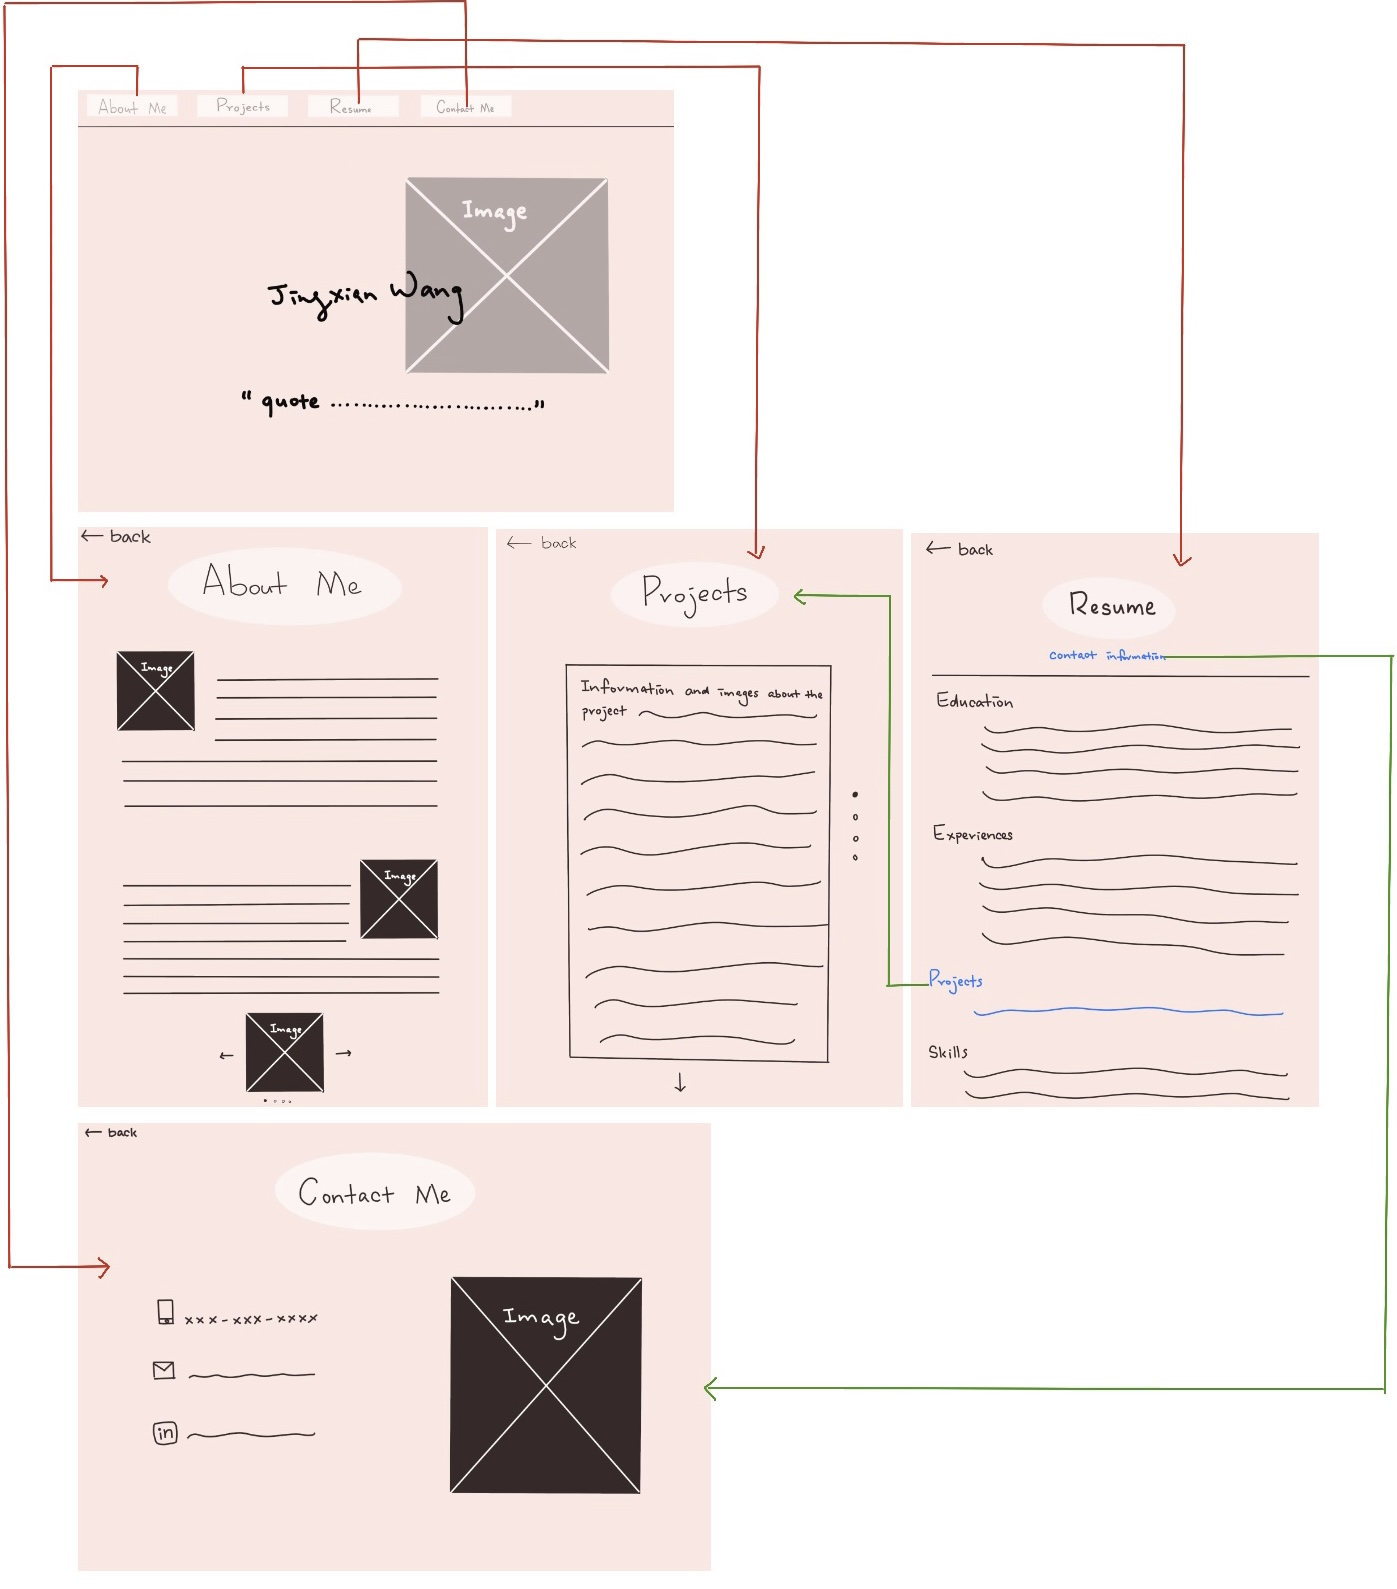 About Me
Projects
Resume
Contact Me
Image
Jingxian Wang
" quote ............................"
← back
About Me
Image
Image
← Image →
← back
Projects
Information and images about the
project
↓
← back
Resume
contact information
Education
Experiences
Projects
Skills
← back
Contact Me
xxx-xxx-xxxx
in
Image